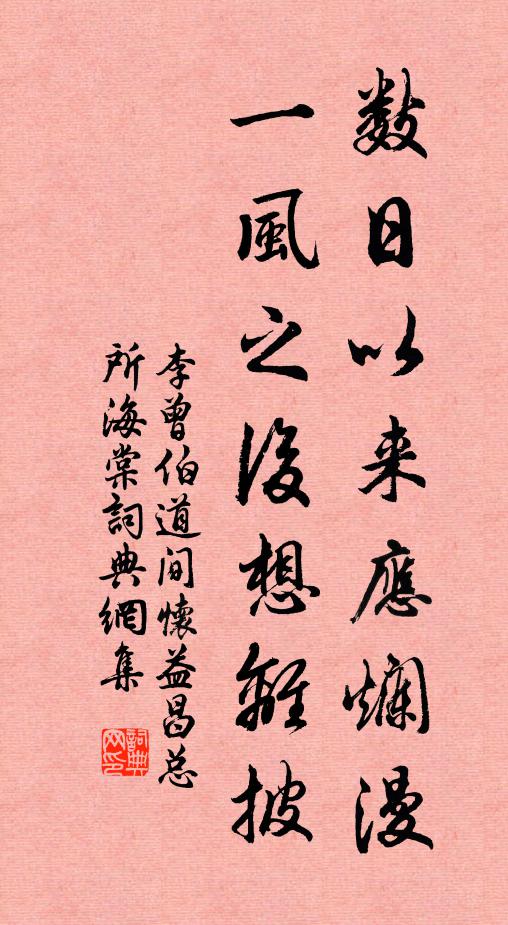 数日以来應爛漫
一風之後想離披
李曾伯道间懷益昌总
所海棠詞典網集
詞典网印